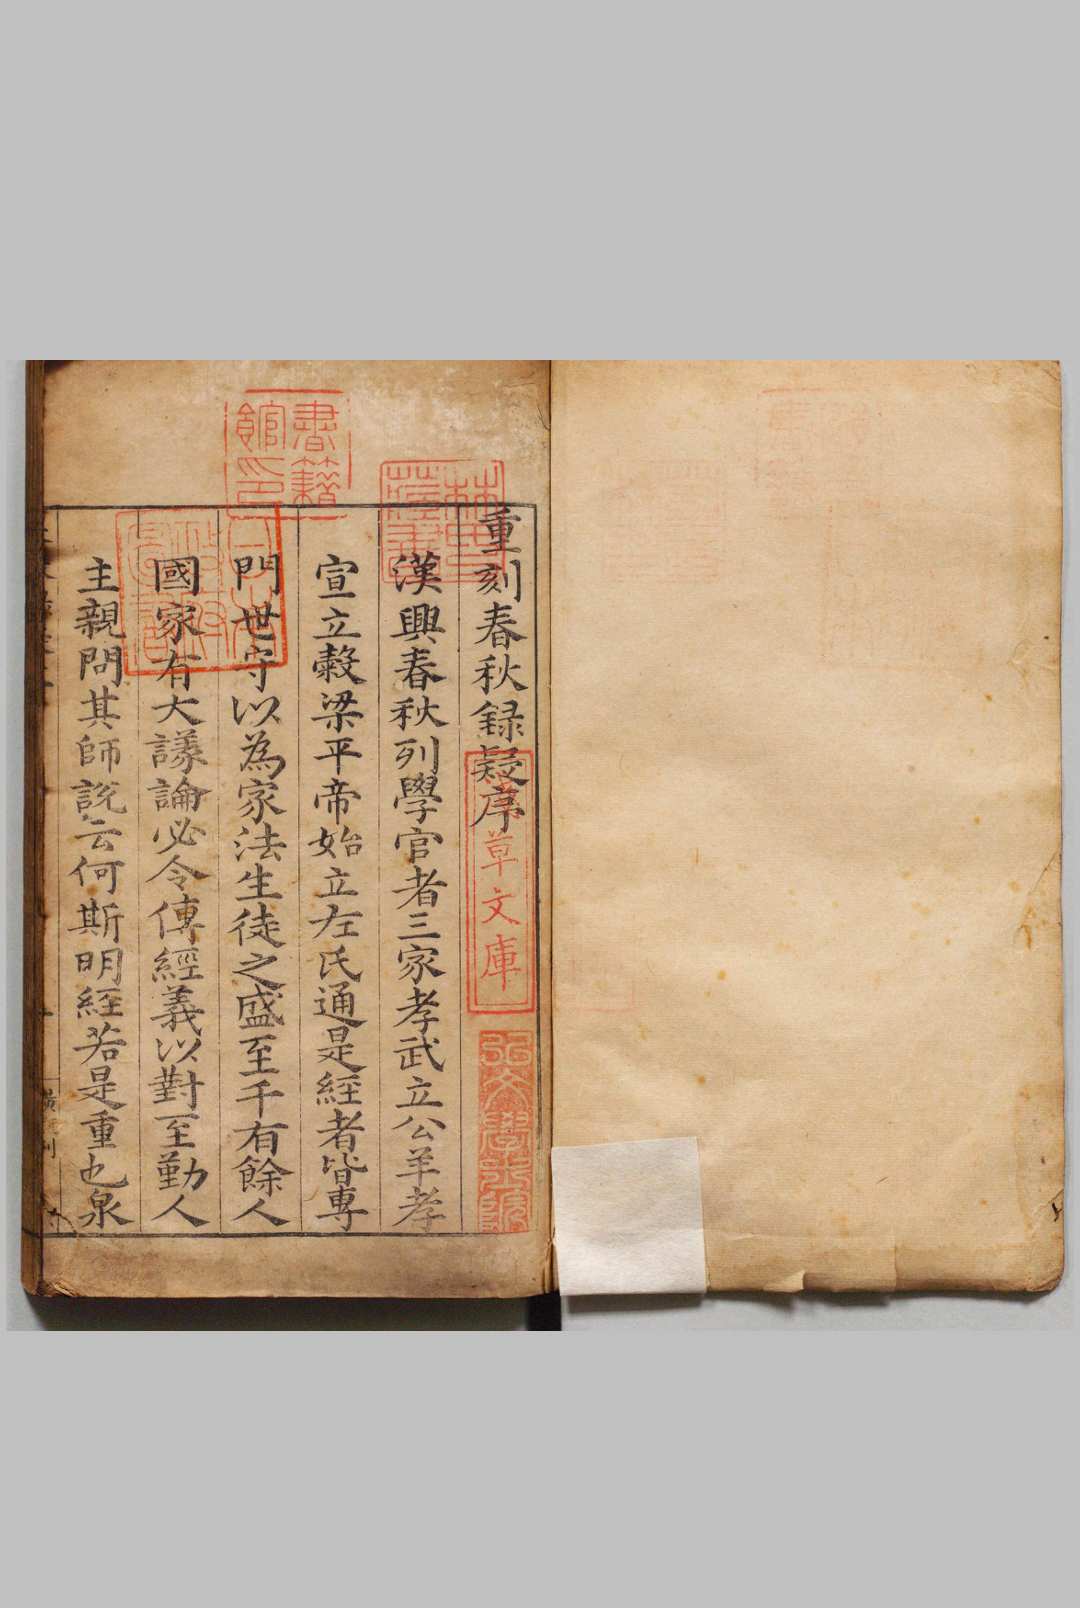 重刻春秋録疑序
漢興春秋列學官者三家孝武立公羊孝
宣立穀梁平帝始立左氏通是經者皆專
門世守以為家法生徒之盛至千有餘人
國家有大議論必令傳經義以對至勤人
主親問其師說云何斯明經若是重也泉
書籍
館印
林氏
藏書
草文庫
弘文學士院